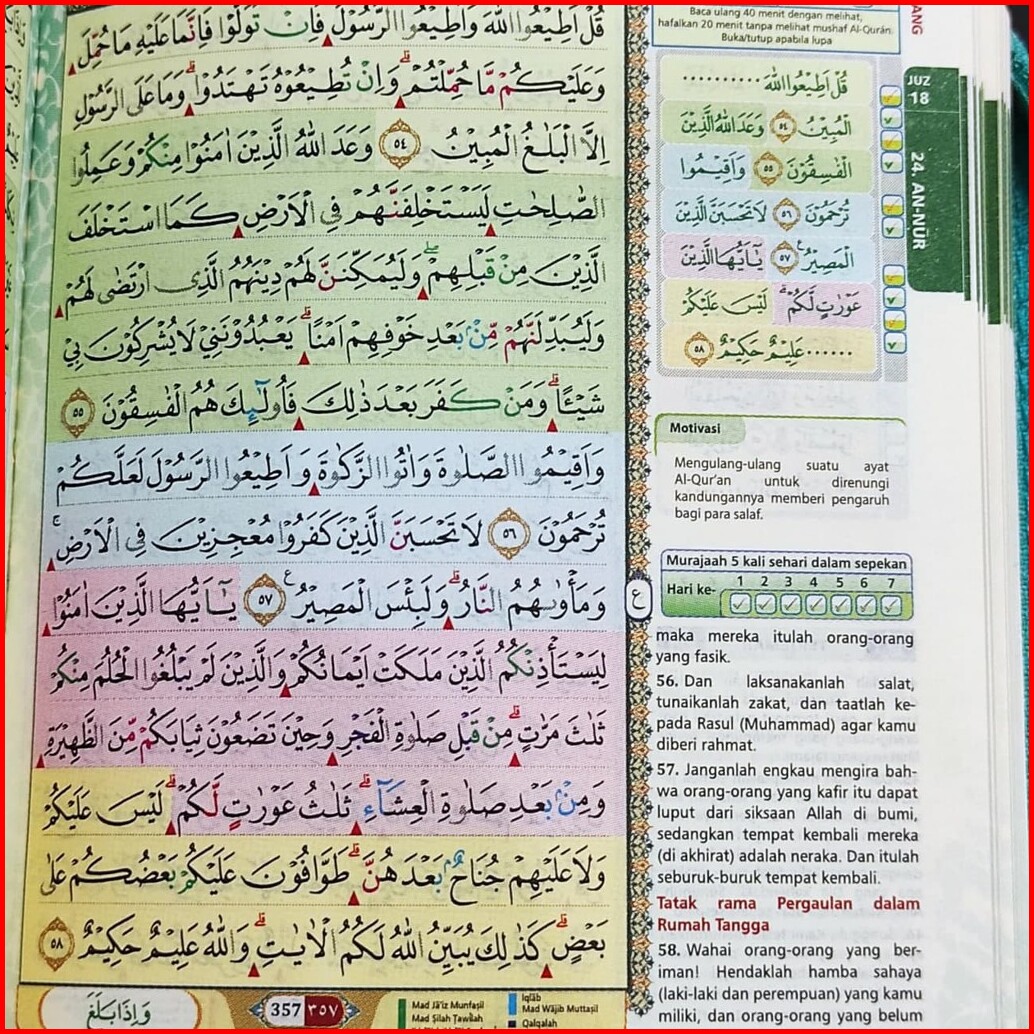 قُلْ اَطِيْعُوا اللّٰهَ وَاَطِيْعُوا الرَّسُوْلَۚ فَاِنْ تَوَلَّوْا فَاِنَّمَا عَلَيْهِ مَا حُمِّلَ
وَعَلَيْكُمْ مَّا حُمِّلْتُمْۗ وَاِنْ تُطِيْعُوْهُ تَهْتَدُوْاۗ وَمَا عَلَى الرَّسُوْلِ
اِلَّا الْبَلٰغُ الْمُبِيْنُ ٥٤ وَعَدَ اللّٰهُ الَّذِيْنَ اٰمَنُوْا مِنْكُمْ وَعَمِلُوا
الصّٰلِحٰتِ لَيَسْتَخْلِفَنَّهُمْ فِى الْاَرْضِ كَمَا اسْتَخْلَفَ
الَّذِيْنَ مِنْ قَبْلِهِمْۖ وَلَيُمَكِّنَنَّ لَهُمْ دِيْنَهُمُ الَّذِى ارْتَضٰى لَهُمْ
وَلَيُبَدِّلَنَّهُمْ مِّنْۢ بَعْدِ خَوْفِهِمْ اَمْنًاۗ يَعْبُدُوْنَنِيْ لَا يُشْرِكُوْنَ بِيْ
شَيْـًٔاۗ وَمَنْ كَفَرَ بَعْدَ ذٰلِكَ فَاُولٰۤىِٕكَ هُمُ الْفٰسِقُوْنَ ٥٥
وَاَقِيْمُوا الصَّلٰوةَ وَاٰتُوا الزَّكٰوةَ وَاَطِيْعُوا الرَّسُوْلَ لَعَلَّكُمْ
تُرْحَمُوْنَ ٥٦ لَا تَحْسَبَنَّ الَّذِيْنَ كَفَرُوْا مُعْجِزِيْنَ فِى الْاَرْضِۚ
وَمَأْوٰىهُمُ النَّارُۗ وَلَبِئْسَ الْمَصِيْرُ ࣖ ٥٧ يٰٓاَيُّهَا الَّذِيْنَ اٰمَنُوْا
لِيَسْتَأْذِنْكُمُ الَّذِيْنَ مَلَكَتْ اَيْمَانُكُمْ وَالَّذِيْنَ لَمْ يَبْلُغُوا الْحُلُمَ مِنْكُمْ
ثَلٰثَ مَرّٰتٍۗ مِنْ قَبْلِ صَلٰوةِ الْفَجْرِ وَحِيْنَ تَضَعُوْنَ ثِيَابَكُمْ مِّنَ الظَّهِيْرَةِ
وَمِنْۢ بَعْدِ صَلٰوةِ الْعِشَاۤءِۗ ثَلٰثُ عَوْرٰتٍ لَّكُمْۗ لَيْسَ عَلَيْكُمْ
وَلَا عَلَيْهِمْ جُنَاحٌۢ بَعْدَهُنَّۗ طَوَّافُوْنَ عَلَيْكُمْ بَعْضُكُمْ عَلٰى
بَعْضٍۗ كَذٰلِكَ يُبَيِّنُ اللّٰهُ لَكُمُ الْاٰيٰتِۗ وَاللّٰهُ عَلِيْمٌ حَكِيْمٌ ٥٨
وَاِذَا بَلَغَ
357 ٣٥٧
Mad Jā'iz Munfaṣil
Mad Ṣilah Ṭawīlah
Iqlāb
Mad Wājib Muttaṣil
Qalqalah
ع
Baca ulang 40 menit dengan melihat,
hafalkan 20 menit tanpa melihat mushaf Al-Qurān.
Buka/tutup apabila lupa
قُلْ اَطِيْعُوا اللّٰهَ ..........
الْمُبِيْنُ ٥٤ وَعَدَ اللّٰهُ الَّذِيْنَ
الْفٰسِقُوْنَ ٥٥ وَاَقِيْمُوا
تُرْحَمُوْنَ ٥٦ لَا تَحْسَبَنَّ الَّذِيْنَ
الْمَصِيْرُ ࣖ ٥٧ يٰٓاَيُّهَا الَّذِيْنَ
عَوْرٰتٍ لَّكُمْۗ لَيْسَ عَلَيْكُمْ
...... عَلِيْمٌ حَكِيْمٌ ٥٨
JUZ
18
24. AN-NŪR
Motivasi
Mengulang-ulang suatu ayat
Al-Qur'an untuk direnungi
kandungannya memberi pengaruh
bagi para salaf.
Murajaah 5 kali sehari dalam sepekan
Hari ke- 1 2 3 4 5 6 7
maka mereka itulah orang-orang
yang fasik.
56. Dan laksanakanlah salat,
tunaikanlah zakat, dan taatlah ke-
pada Rasul (Muhammad) agar kamu
diberi rahmat.
57. Janganlah engkau mengira bah-
wa orang-orang yang kafir itu dapat
luput dari siksaan Allah di bumi,
sedangkan tempat kembali mereka
(di akhirat) adalah neraka. Dan itulah
seburuk-buruk tempat kembali.
Tatak rama Pergaulan dalam
Rumah Tangga
58. Wahai orang-orang yang ber-
iman! Hendaklah hamba sahaya
(laki-laki dan perempuan) yang kamu
miliki, dan orang-orang yang belum